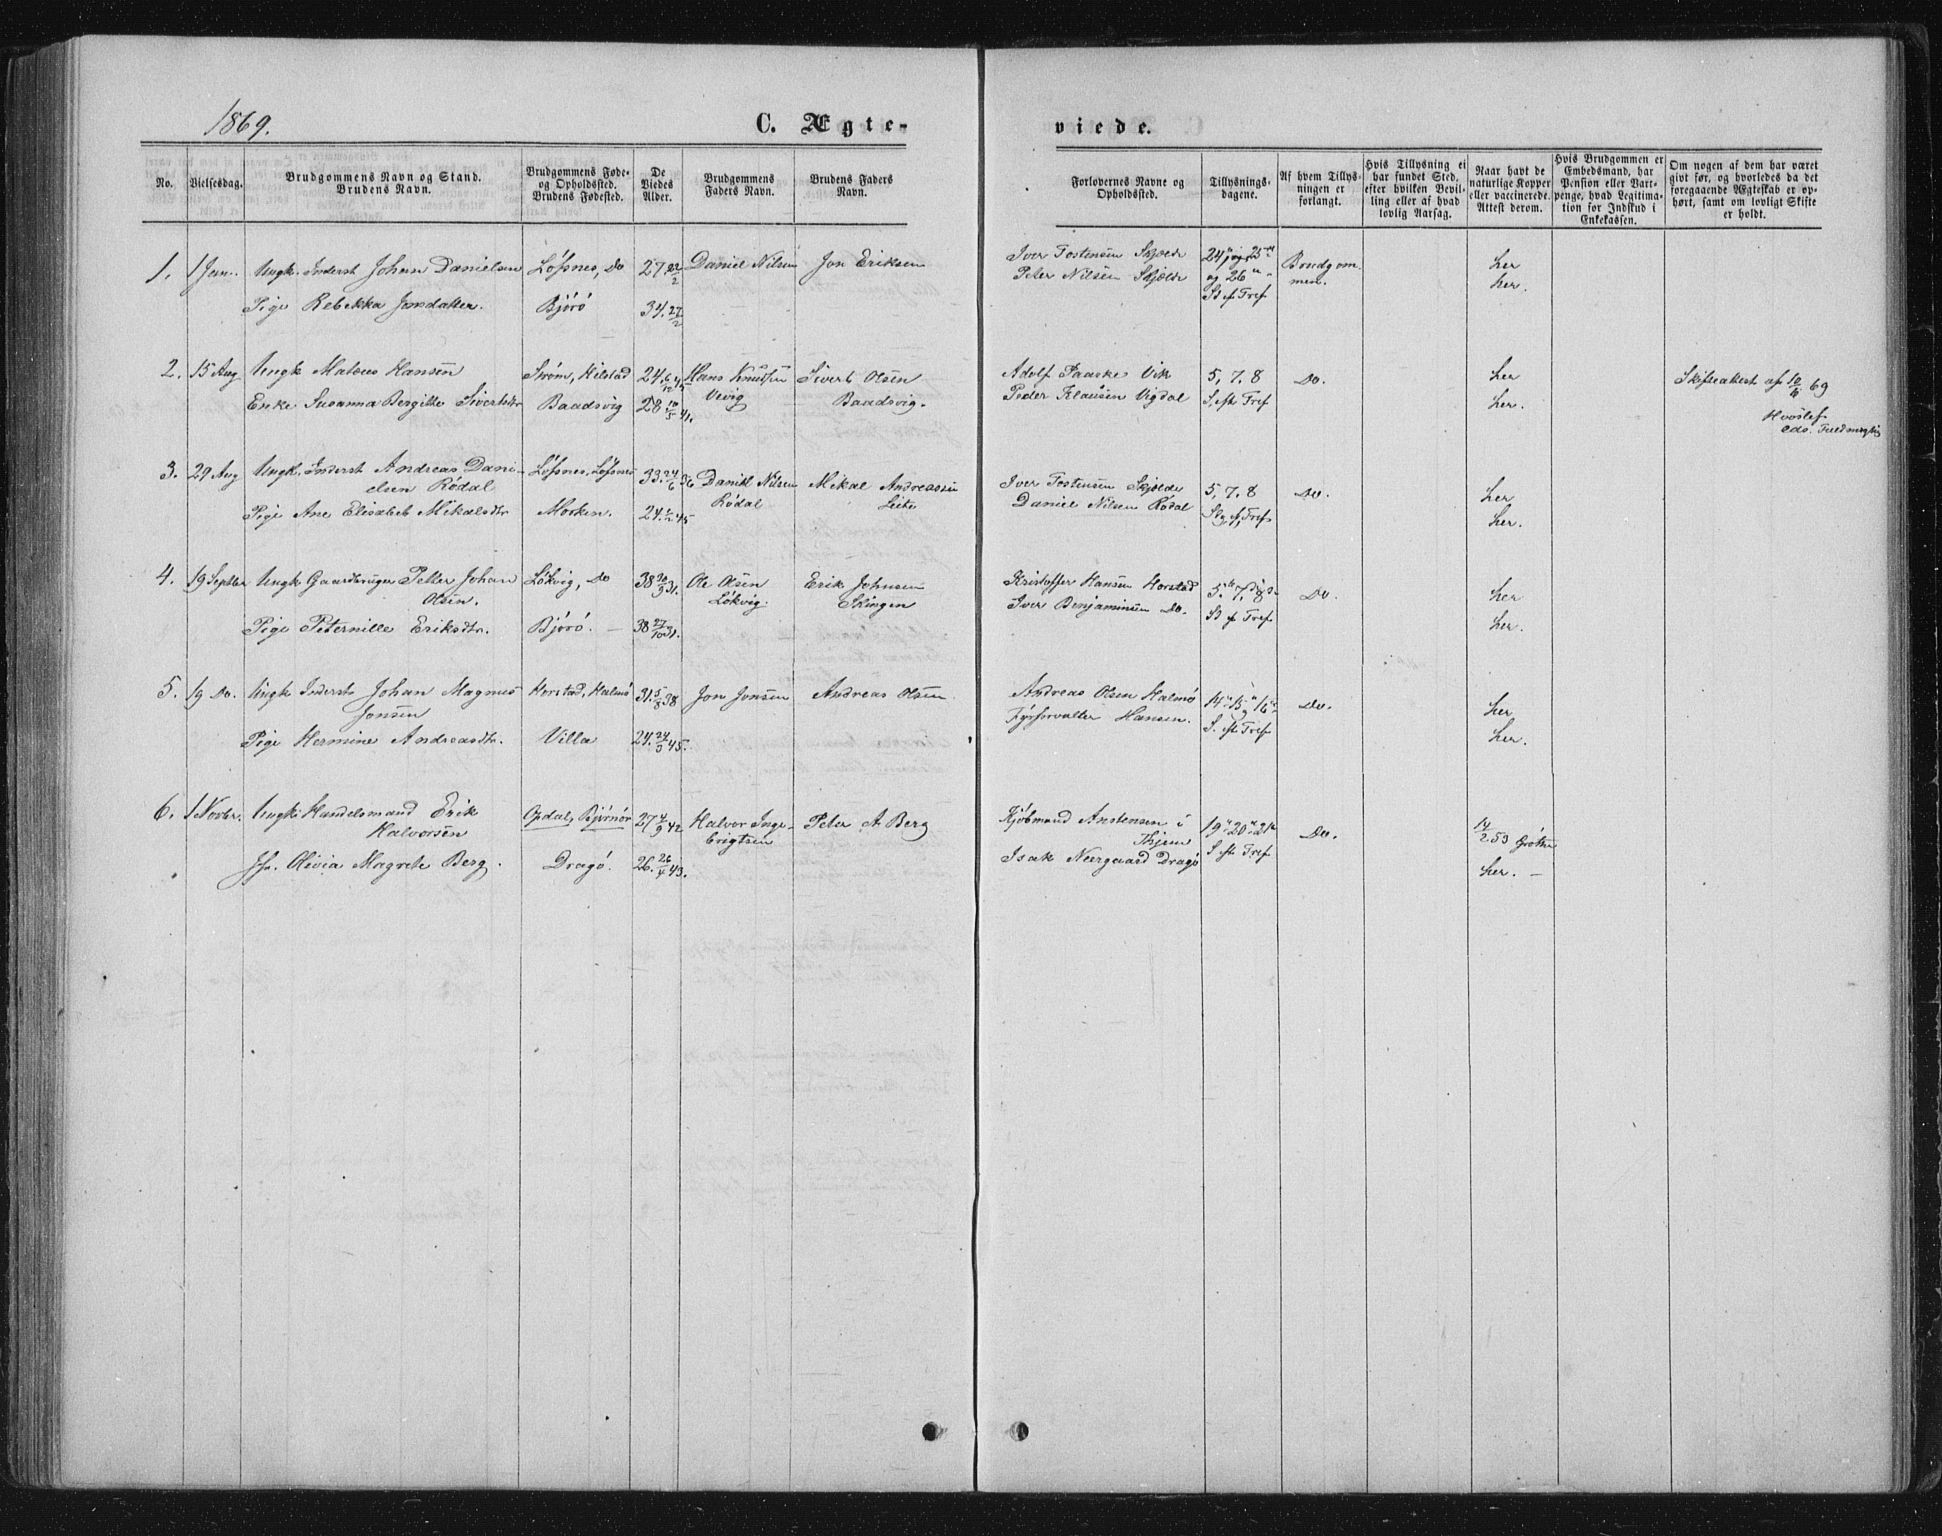 1869.
C. Ægte-
viede.
No.
Vielsesdag.
Brudgommens Navn og Stand.
Brudens Navn.
Brudgommens Føde-
og Opholdssted.
Brudens Fødested.
De
Viedes
Alder.
Brudgommens
Faders Navn.
Brudens Faders
Navn.
Forlovernes Navne og
Opholdssted.
Tillysnings-
dagene.
Af hvem Tillys-
ningen er
forlangt.
Hvis Tillysning ei
har fundet Sted,
efter hvilken Bevil-
ling eller af hvad
lovlig Aarsag.
Naar havt de
naturlige Kopper
eller vaccinerede.
Attest derom.
Hvis Brudgommen er
Embedsmand, har
Pension eller Vart-
penge, hvad Legitima-
tion for Indskud i
Enkekassen.
Om nogen af dem har været
gift før, og hvorledes da det
foregaaende Ægteskab er op-
hørt, samt om lovligt Skifte
er holdt.
1. 1 Jan. Ungk. Inderst Johan Danielsen Løfsnes, Do 27 22/2 Daniel Nilsen Jon Eriksen
Pige Rebekka Jondatter. Bjørø 34. 27/2
Iver Tostensen Skjelde 24 25
Peter Nilsen Skjelde og 26 Brudgom
men. her
St ef Tref her.
2. 15 Aug Ungk Mateus Hansen Strøm, Hilstad 24 6/12 45 Hans Knutsen Sivert Olsen
Vevig
Enke Susanna Bergitte Sivertsdtr Baadsvig 28 10/5 41. Baadsvig.
Adolf Paaske Vik 5, 7, 8 Do. her
Peder Klausen Vigdal S. eft Tref her.
Skifteattest af 10/4 69
Hvoslef
3. 29 Aug Ungk. Inderst Andreas Dani-
elsen Rødal Løfsnes, Løfsnes 33. 24/6 36 Daniel Nilsen
Rødal Mikal Andreassen
Leite
Pige Ane Elisabet Mikalsdtr Morken. 24. 1/2 45
Iver Tostensen Skjelde 5, 7, 8 Do. her
Daniel Nilsen Rødal her.
4. 19 Septbr Ungk Gaardbruger Petter Johan
Olsen. Løkvig, Do 38 30/3 31. Ole Olsen
Løkvig. Erik Johnsen
Skingen
Pige Peternille Eriksdtr. Bjørø. 38 27/10 31.
Kristoffer Hansen Horstad 5. 7. 8 Do. her
Iver Benjaminsen Do. St ef Tref her.
5. 19 Do. Ungk Inderst Johan Magnus
Jonsen Horstad, Halmø 31. 5/8 38 Jon Jonsen Andreas Olsen
Pige Hermine Andreasdtr. Villa 24. 24/3 45.
Andreas Olsen Halmø 14 15 16 Do. her
Fyrforvalter Hansen. S. eft Tref her.
6. 1 Novbr. Ungk. Handelsmand Erik
Halvorsen Opdal, Bjørnør 27 4/9 42 Halvor Inge-
brigtsen Peter A Berg
Jfr. Olivia Magrete Berg. Dragø. 26. 26/4 43.
Kjøbmand Anstensen i
Thjem 19 20 21 Do. 14/2 53
Isak Neergaard Dragø S eft Tref her.